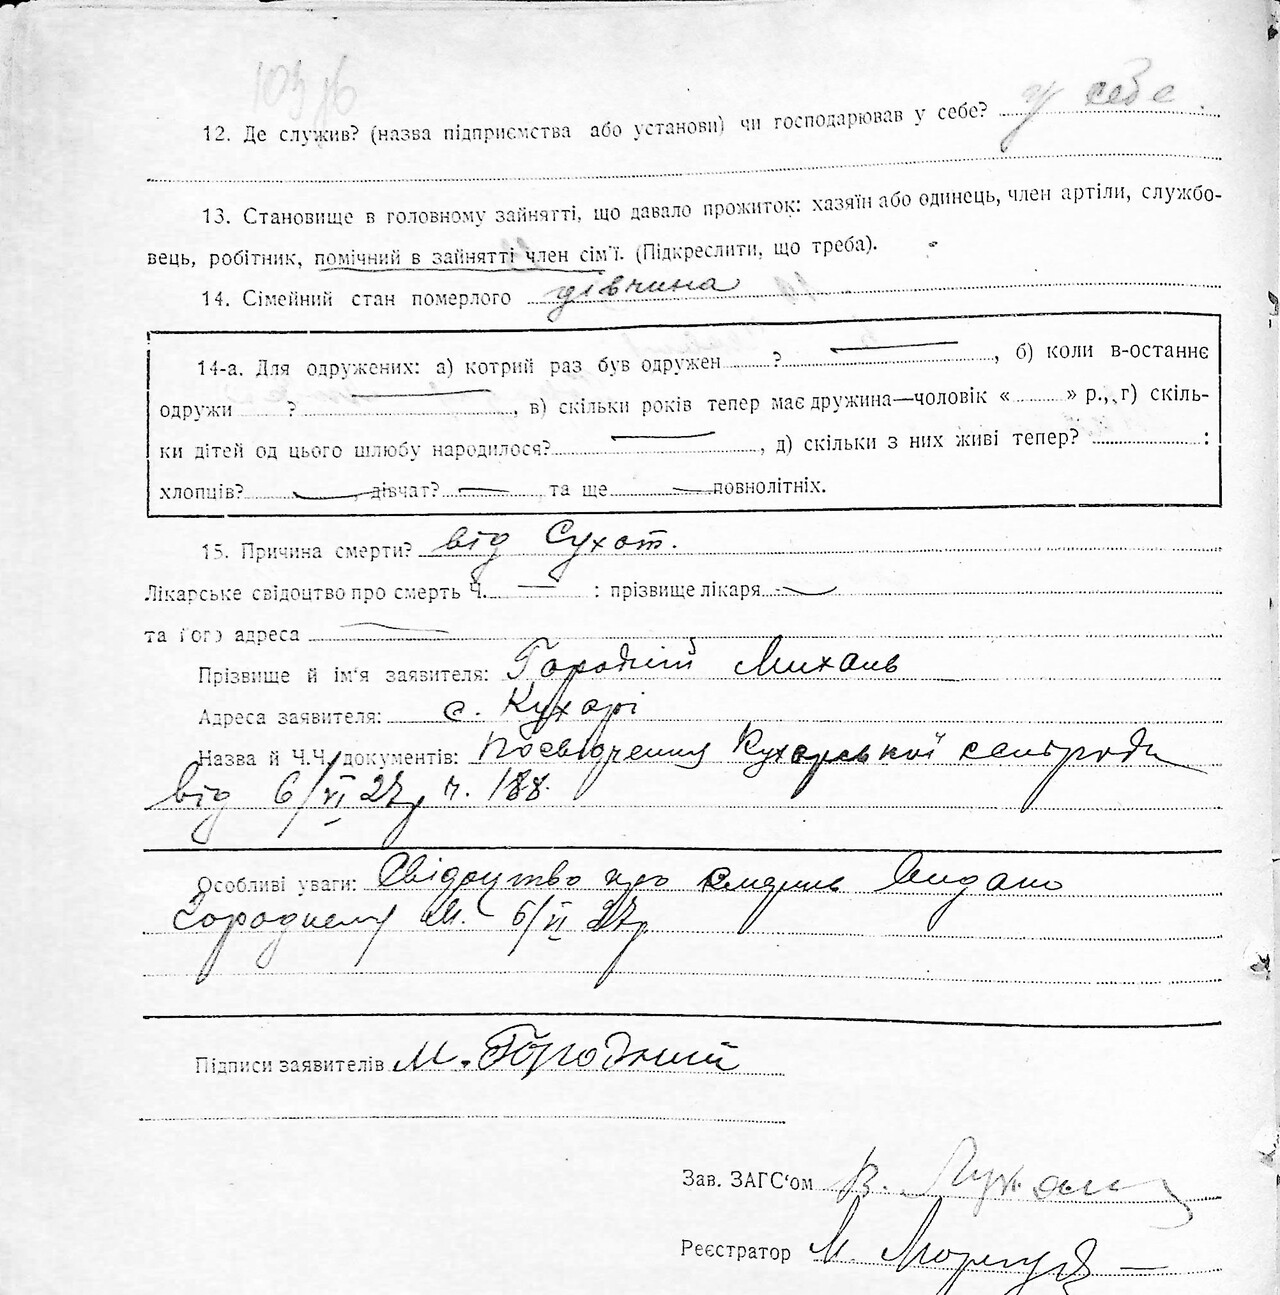 12. Де служив? (назва підприємства або установи) чи господарював у себе? у себе.
13. Становище в головному зайнятті, що давало прожиток: хазяїн або одинець, член артіли, службо-
вець, робітник, помічний в зайнятті член сім'ї. (Підкреслити, що треба).
14. Сімейний стан померлого дівчина
14-а. Для одружених: а) котрий раз був одружен ? —, б) коли в-останнє
одружи ? —, в) скільки років тепер має дружина—чоловік « » р., г) скіль-
ки дітей од цього шлюбу народилося? —, д) скільки з них живі тепер? :
хлопців? — дівчат? — та ще — повнолітніх.
15. Причина смерти? від Сухот.
Лікарське свідоцтво про смерть Ч. — : прізвище лікаря —
та його адреса —
Прізвище й ім'я заявителя: Городній Михаль
Адреса заявителя: с. Кухарі
Назва й Ч.Ч. документів: Посвідчення Кухарської сельради
від 6/VI 27р ч. 188.
Особливі уваги: Свідоцтво про смерть видано
Городнему М. 6/VI 27р.
Підписи заявителів М. Городний
Зав. ЗАГС'ом В.
Реєстратор М.